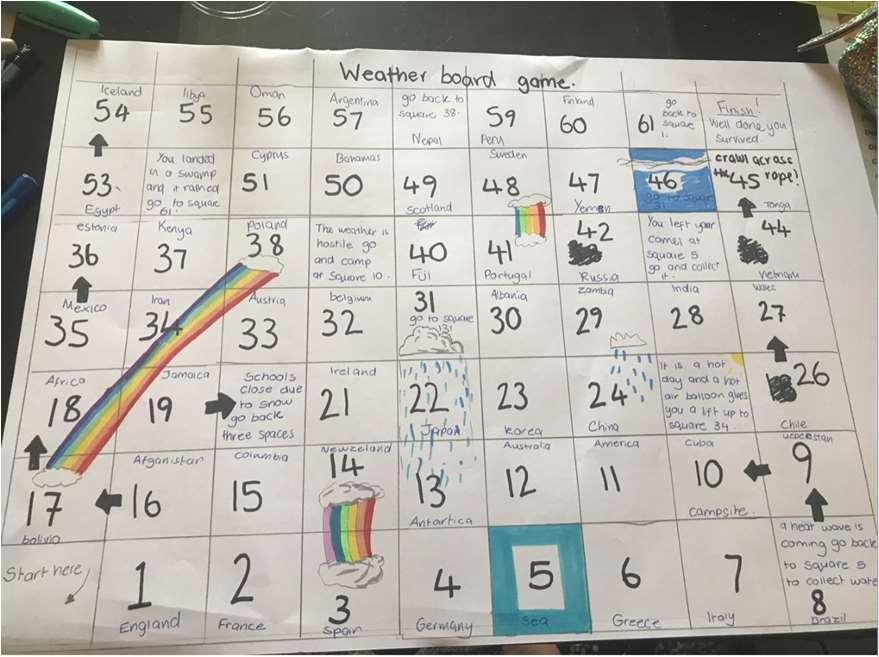 Weather board game.
Iceland
54
libya
55
Oman
56
Argentina
57
go back to
square 38.
Nepal
59
Peru
Finland
60
61
go
back to
square
1.
Finish!
Well done you
survived.
53.
Egypt
You landed
in a swamp
and it rained
go to square
61.
Cyprus
51
Bahamas
50
49
Scotland
Sweden
48
47
Yemen
46
go to square
crawl across
the rope!
45
Tonga
estonia
36
Kenya
37
Poland
38
The weather is
hostile go
and camp
at square 10.
40
Fiji
41
Portugal
42
Russia
You left your
camel at
square 5
go and collect
it.
44
Vietnam
Mexico
35
Iran
34
Austria
33
belgium
32
31
go to square
13!
Albania
30
Zambia
29
India
28
Wales
27
Africa
18
Jamaica
19
Schools
close due
to snow
go back
three spaces
Ireland
21
22
Japan
23
Korea
24
China
It is a hot
day and a hot
air balloon gives
you a lift up to
square 34.
26
Chile
17
bolivia
Afganistan
16
Columbia
15
Newzeland
14
13
Antartica
Australia
12
America
11
Cuba
10
Campsite.
9
Start here
1
England
2
France
3
Spain
4
Germany
5
Sea
6
Greece
7
Italy
a heat wave is
coming go back
to square 5
to collect water
8
Brazil